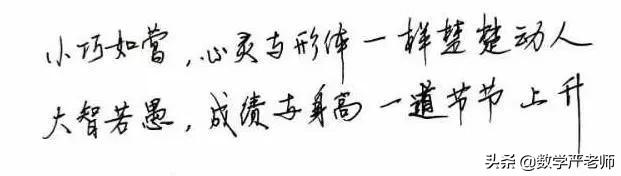 小巧如莺，心灵与形体一样楚楚动人
大智若愚，成绩与身高一道节节上升
头条 @数学严老师